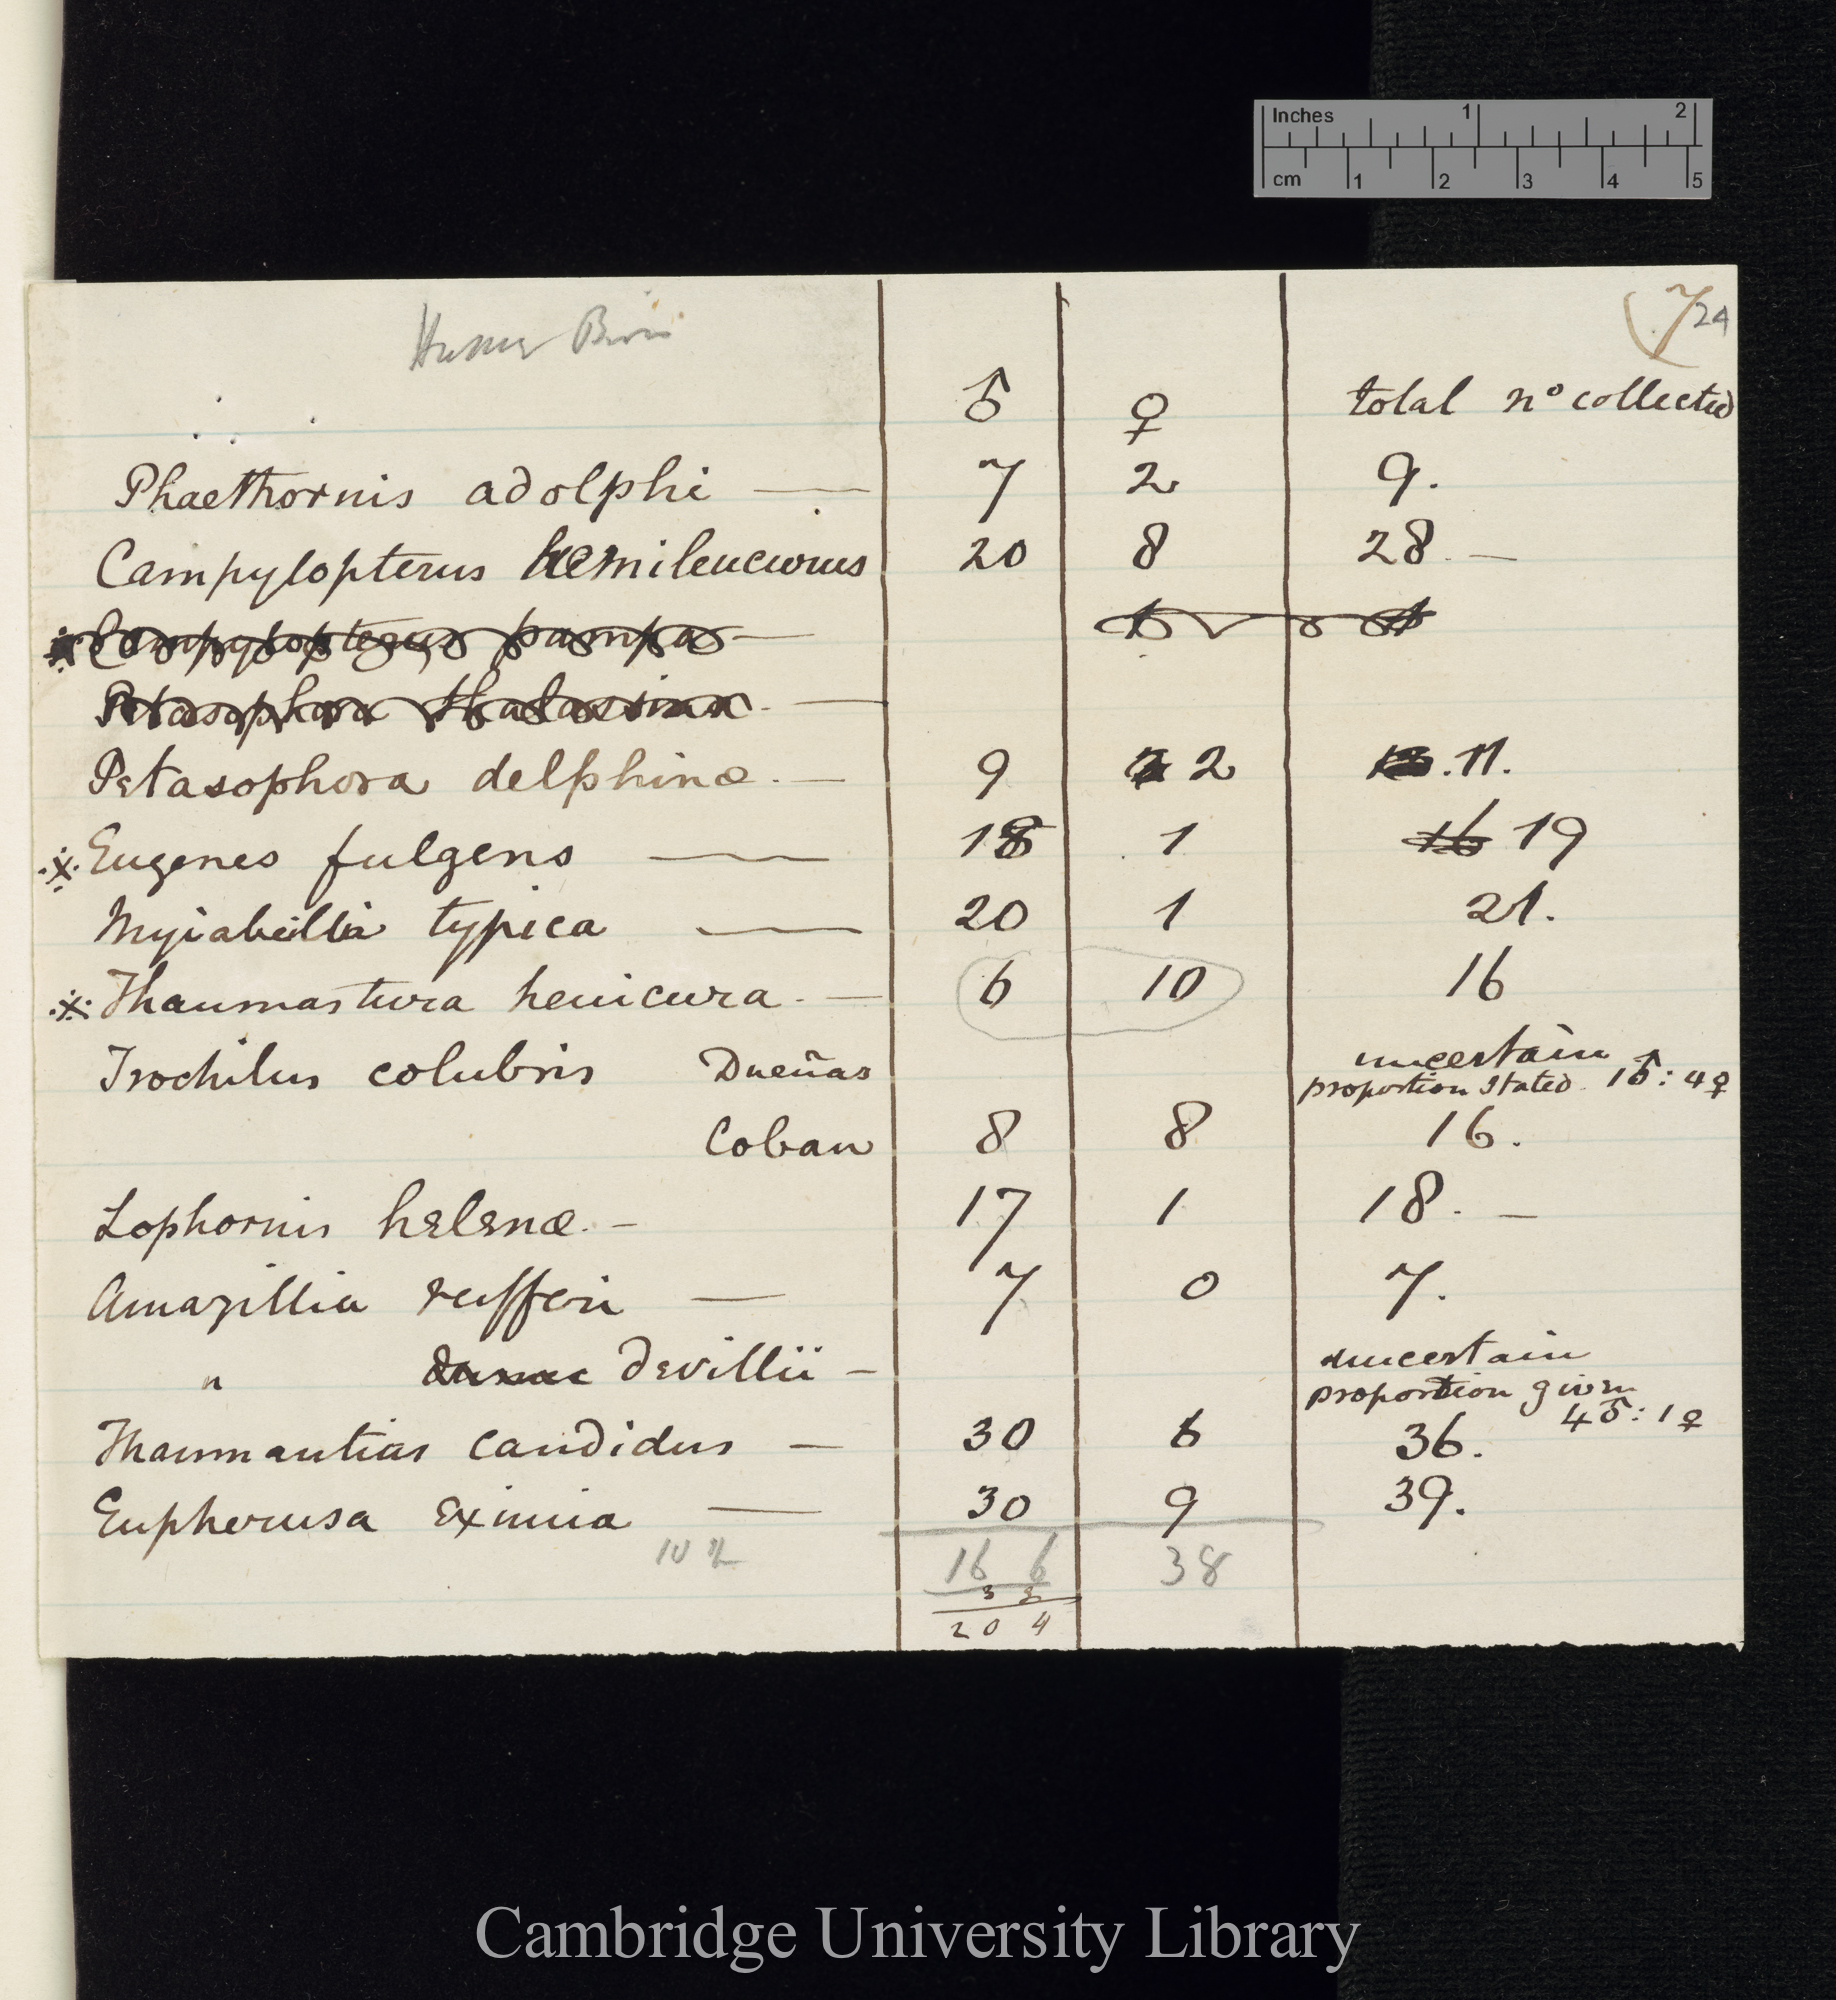 Inches 1 2
cm 1 2 3 4 5
(7 24
Humg Birds
♂ ♀ total no collected
Phaethornis adolphi — 7 2 9.
Campylopterus hemileucurus 20 8 28. —
Campylopterus pampa —
Petasophora thalassina. —
Petasophora delphinæ. — 9 2 11.
※ Eugenes fulgens — 18 1 16 19
Myiabeillia typica — 20 1 21.
※ Thaumastura henicura. — 6 10 16
Trochilus colubris Dueñas uncertain
proportion stated. 1♂: 4♀
Coban 8 8 16.
Lophornis helenæ. — 17 1 18. —
Amazillia rufferi — 7 0 7.
" devillii — uncertain
proportion given
4♂: 1♀
Thaumantias candidus — 30 6 36.
Eupherusa eximia — 30 9 39.
16 6 38
3 8
20 4
Cambridge University Library